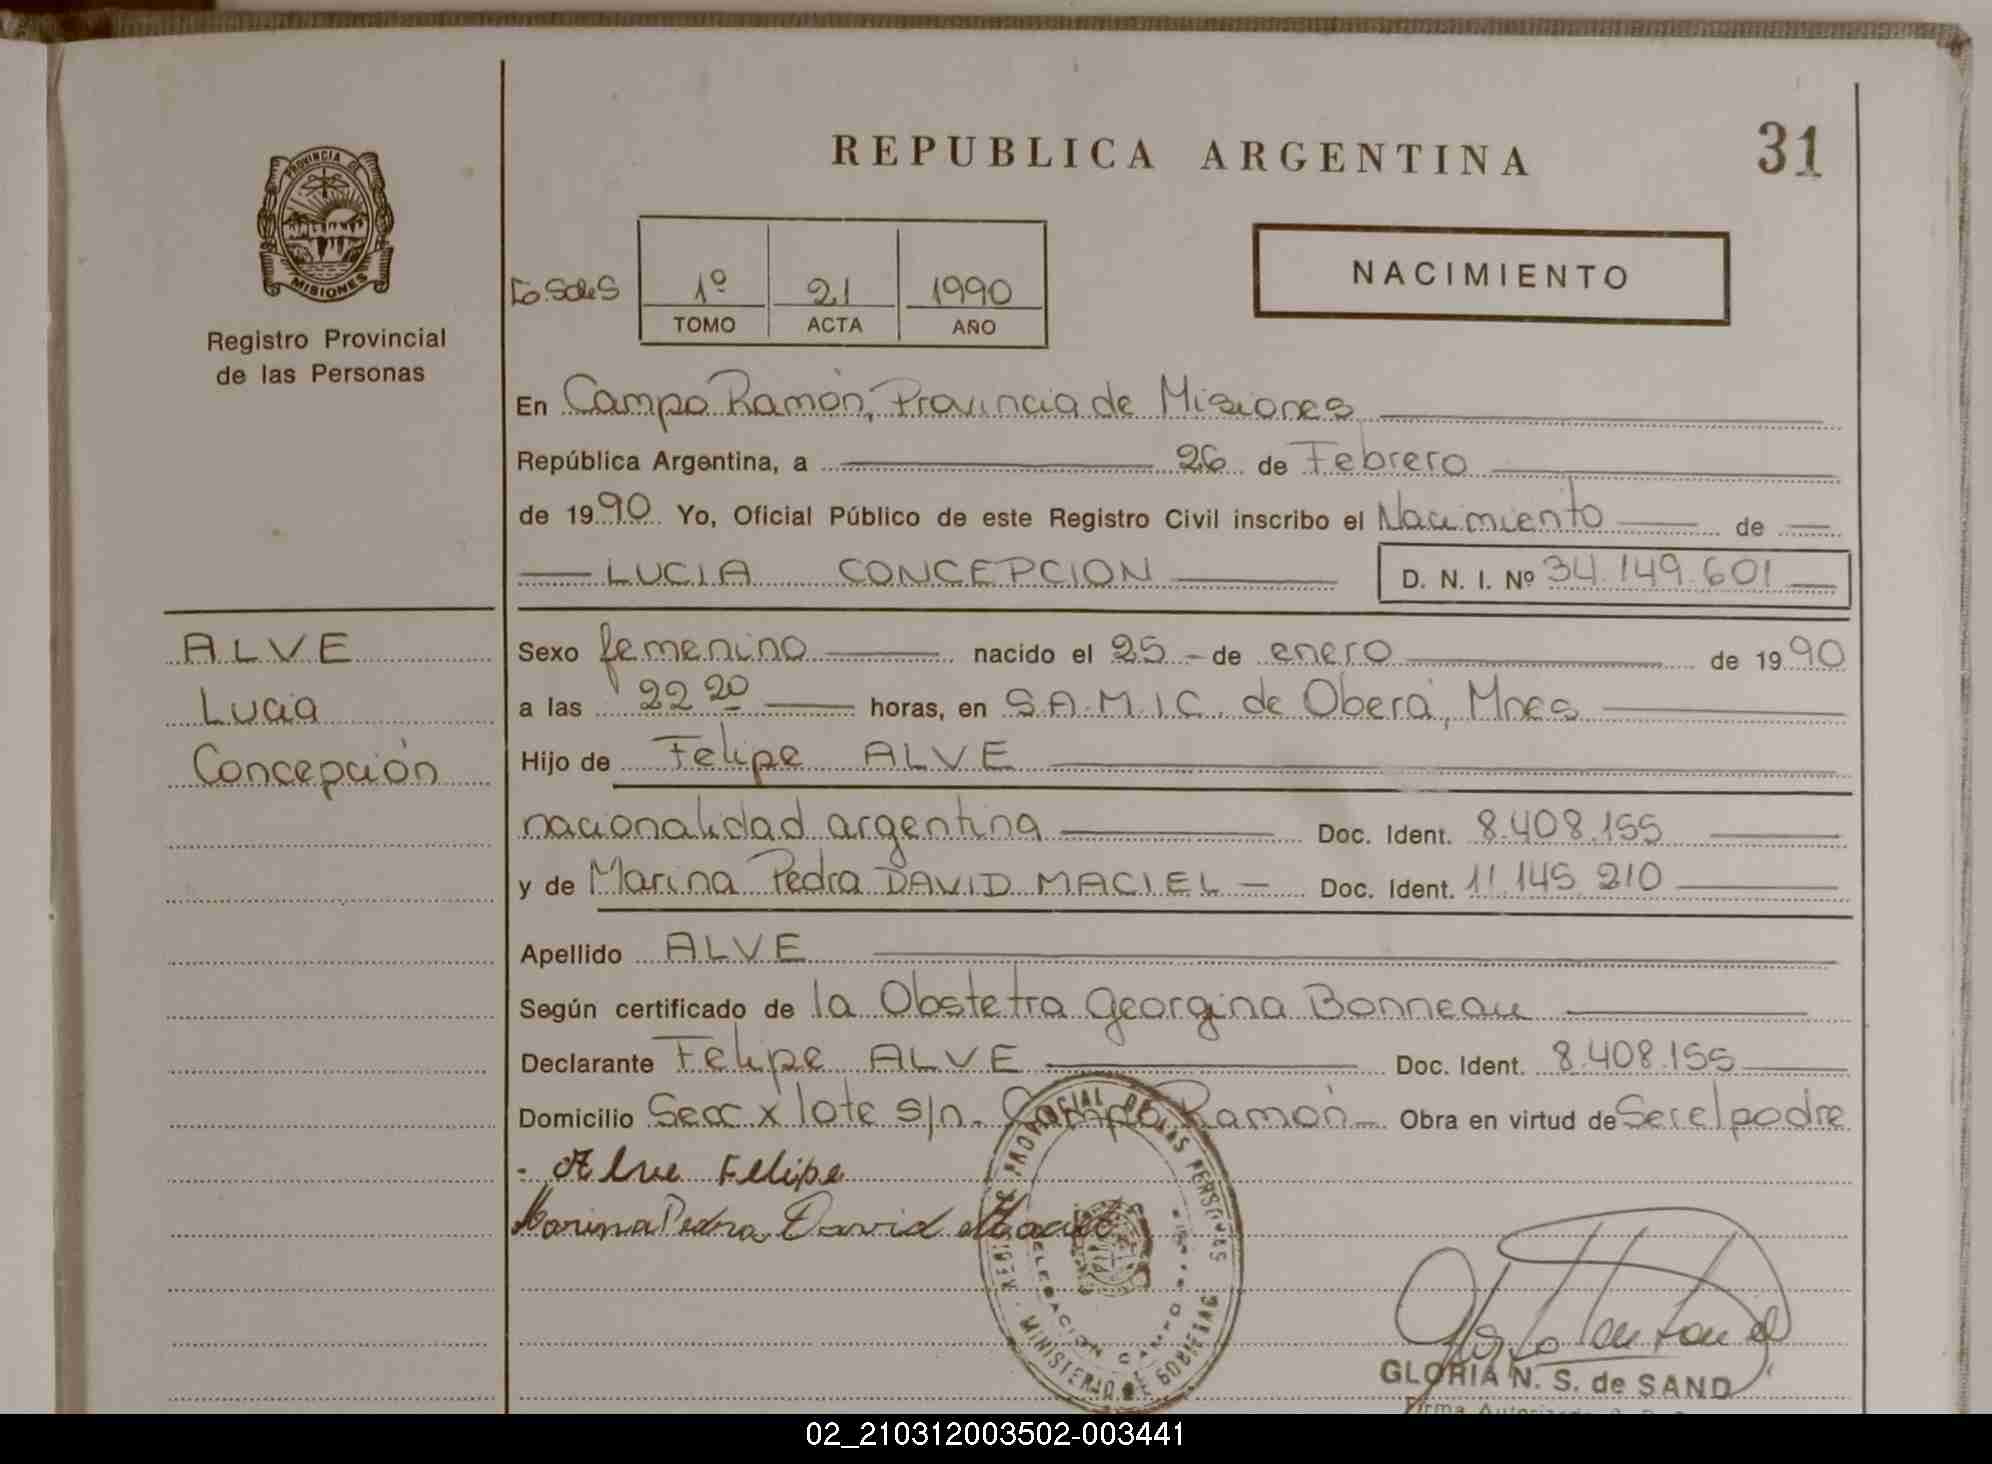 REPUBLICA ARGENTINA
31
PROVINCIA DE
MISIONES
Registro Provincial
de las Personas
1º 21 1990
TOMO ACTA AÑO
NACIMIENTO
En Campo Ramón, Provincia de Misiones
República Argentina, a 26 de Febrero
de 1990 Yo, Oficial Público de este Registro Civil inscribo el Nacimiento de
LUCIA CONCEPCION D. N. I. Nº 34.149.601
ALVE
Lucia
Concepción
Sexo femenino nacido el 25 - de enero de 1990
a las 22 20 horas, en S.A.M.I.C. de Oberá, Mnes
Hijo de Felipe ALVE
nacionalidad argentina Doc. Ident. 8.408.155
y de Marina Pedra DAVID MACIEL - Doc. Ident. 11.145.210
Apellido ALVE
Según certificado de la Obstetra Georgina Bonneau
Declarante Felipe ALVE Doc. Ident. 8.408.155
Domicilio Secc x lote s/n. Campo Ramón - Obra en virtud de Ser el padre
Alve Felipe
Marina Pedra David Maciel
PROVINCIAL DE LAS PERSONAS
DELEGACION CAMPO
MINISTERIO DE GOBIERNO
GLORIA N. S. de SAND
02_210312003502-003441